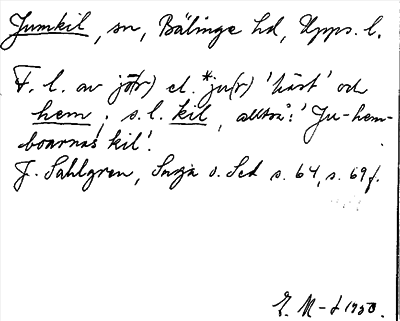 Jumkil, sn, Bälinge hd, Upps. l.
F. l. av jó(r) el. *ju(r) 'häst' och
hem; s. l. kil, alltså: 'Ju-hem-
boarnas kil'.
J. Sahlgren, Saga o. Sed s. 64, s. 69 f.
E. M-d 1950.